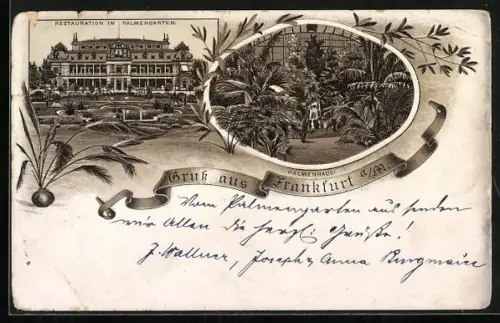 RESTAURATION IM PALMENGARTEN.
PALMENHAUS.
Gruß aus Frankfurt a/M.
Vom Palmengarten aus senden
wir Allen die herzl. Grüße!
J. Wallner, Joseph & Anna Burgmaier